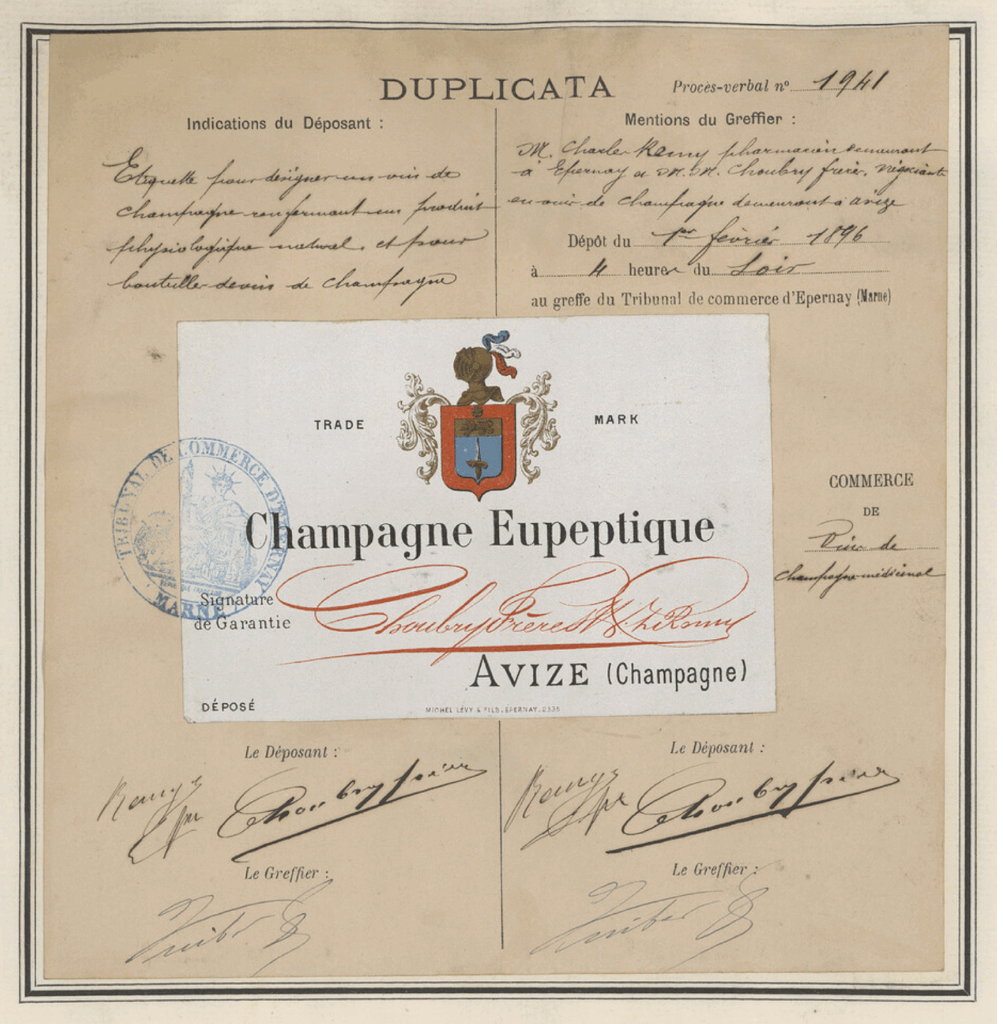 DUPLICATA
Procès-verbal nº 1941
Indications du Déposant :
Etiquette pour désigner un vin de
champagne renfermant un produit
physiologique naturel, et pour
bouteilles de vin de champagne
Mentions du Greffier :
M. Charles Remy pharmacien demeurant
à Epernay et M.M. Choubry frères, négociants
en vin de champagne demeurant à avize
Dépôt du 1er février 1896
à 4 heures du Soir
au greffe du Tribunal de commerce d'Epernay (Marne)
TRADE MARK
TRIBUNAL DE COMMERCE D'EPERNAY
MARNE
Champagne Eupeptique
Signature
de Garantie
Choubry Frères & Ch. Remy
AVIZE (Champagne)
DÉPOSÉ
MICHEL LÉVY & FILS. EPERNAY.
COMMERCE
DE
Vins de
champagne médicinal
Le Déposant :
Remy
Choubry frères
Le Greffier :
Le Déposant :
Remy
Choubry frères
Le Greffier :